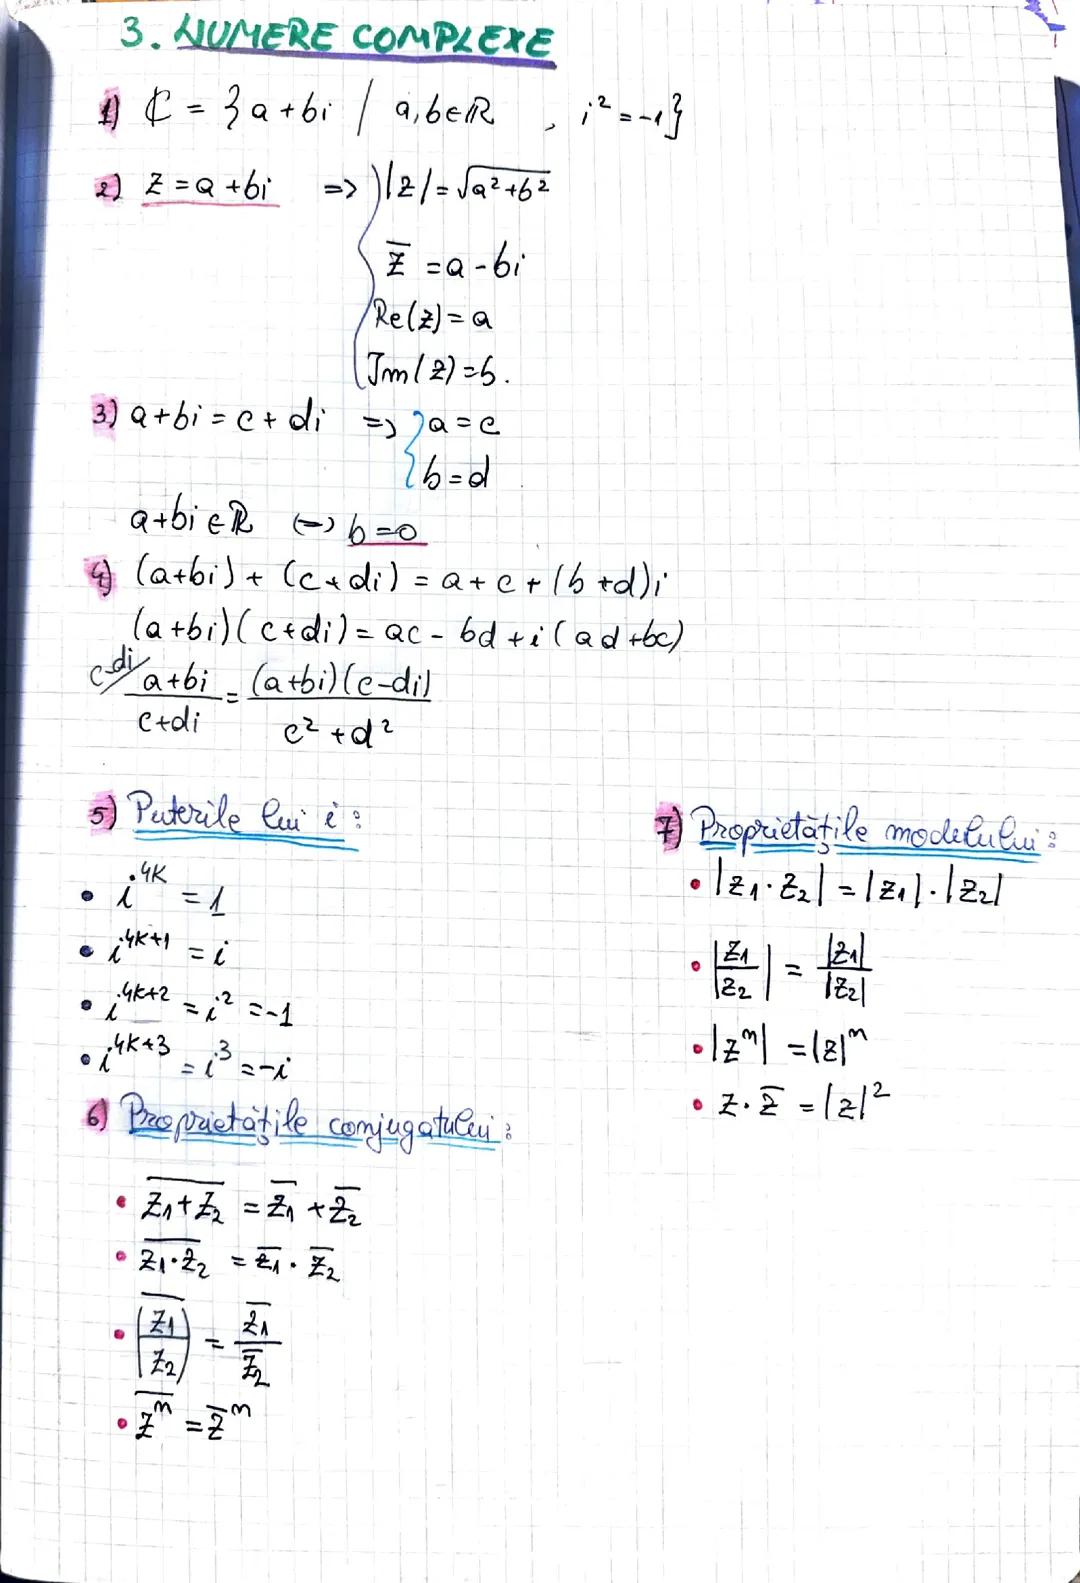 3. NUMERE COMPLEXE
1) ℂ = {a+bi / a,b∈ℝ , i² = -1}
2) z = a+bi => |z| = √(a²+b²)
z̅ = a-bi
Re(z) = a
Im(z) = b.
3) a+bi = c+di => {a=c
b=d
a+bi∈ℝ (=) b=0
4) (a+bi) + (c+di) = a+c+(b+d)i
(a+bi)(c+di) = ac - bd + i(ad+bc)
c-di/ (a+bi)/(c+di) = (a+bi)(c-di)/(c²+d²)
5) Puterile lui i:
• i^{4K} = 1
• i^{4K+1} = i
• i^{4K+2} = i² = -1
• i^{4K+3} = i³ = -i
6) Proprietățile conjugatului:
• \overline{z₁+z₂} = \overline{z₁} + \overline{z₂}
• \overline{z₁·z₂} = \overline{z₁} · \overline{z₂}
• \overline{(z₁/z₂)} = \overline{z₁}/\overline{z₂}
• \overline{z^n} = \overline{z}^n
7) Proprietățile modulului:
• |z₁·z₂| = |z₁|·|z₂|
• |z₁/z₂| = |z₁|/|z₂|
• |z^n| = |z|^n
• z·z̅ = |z|²